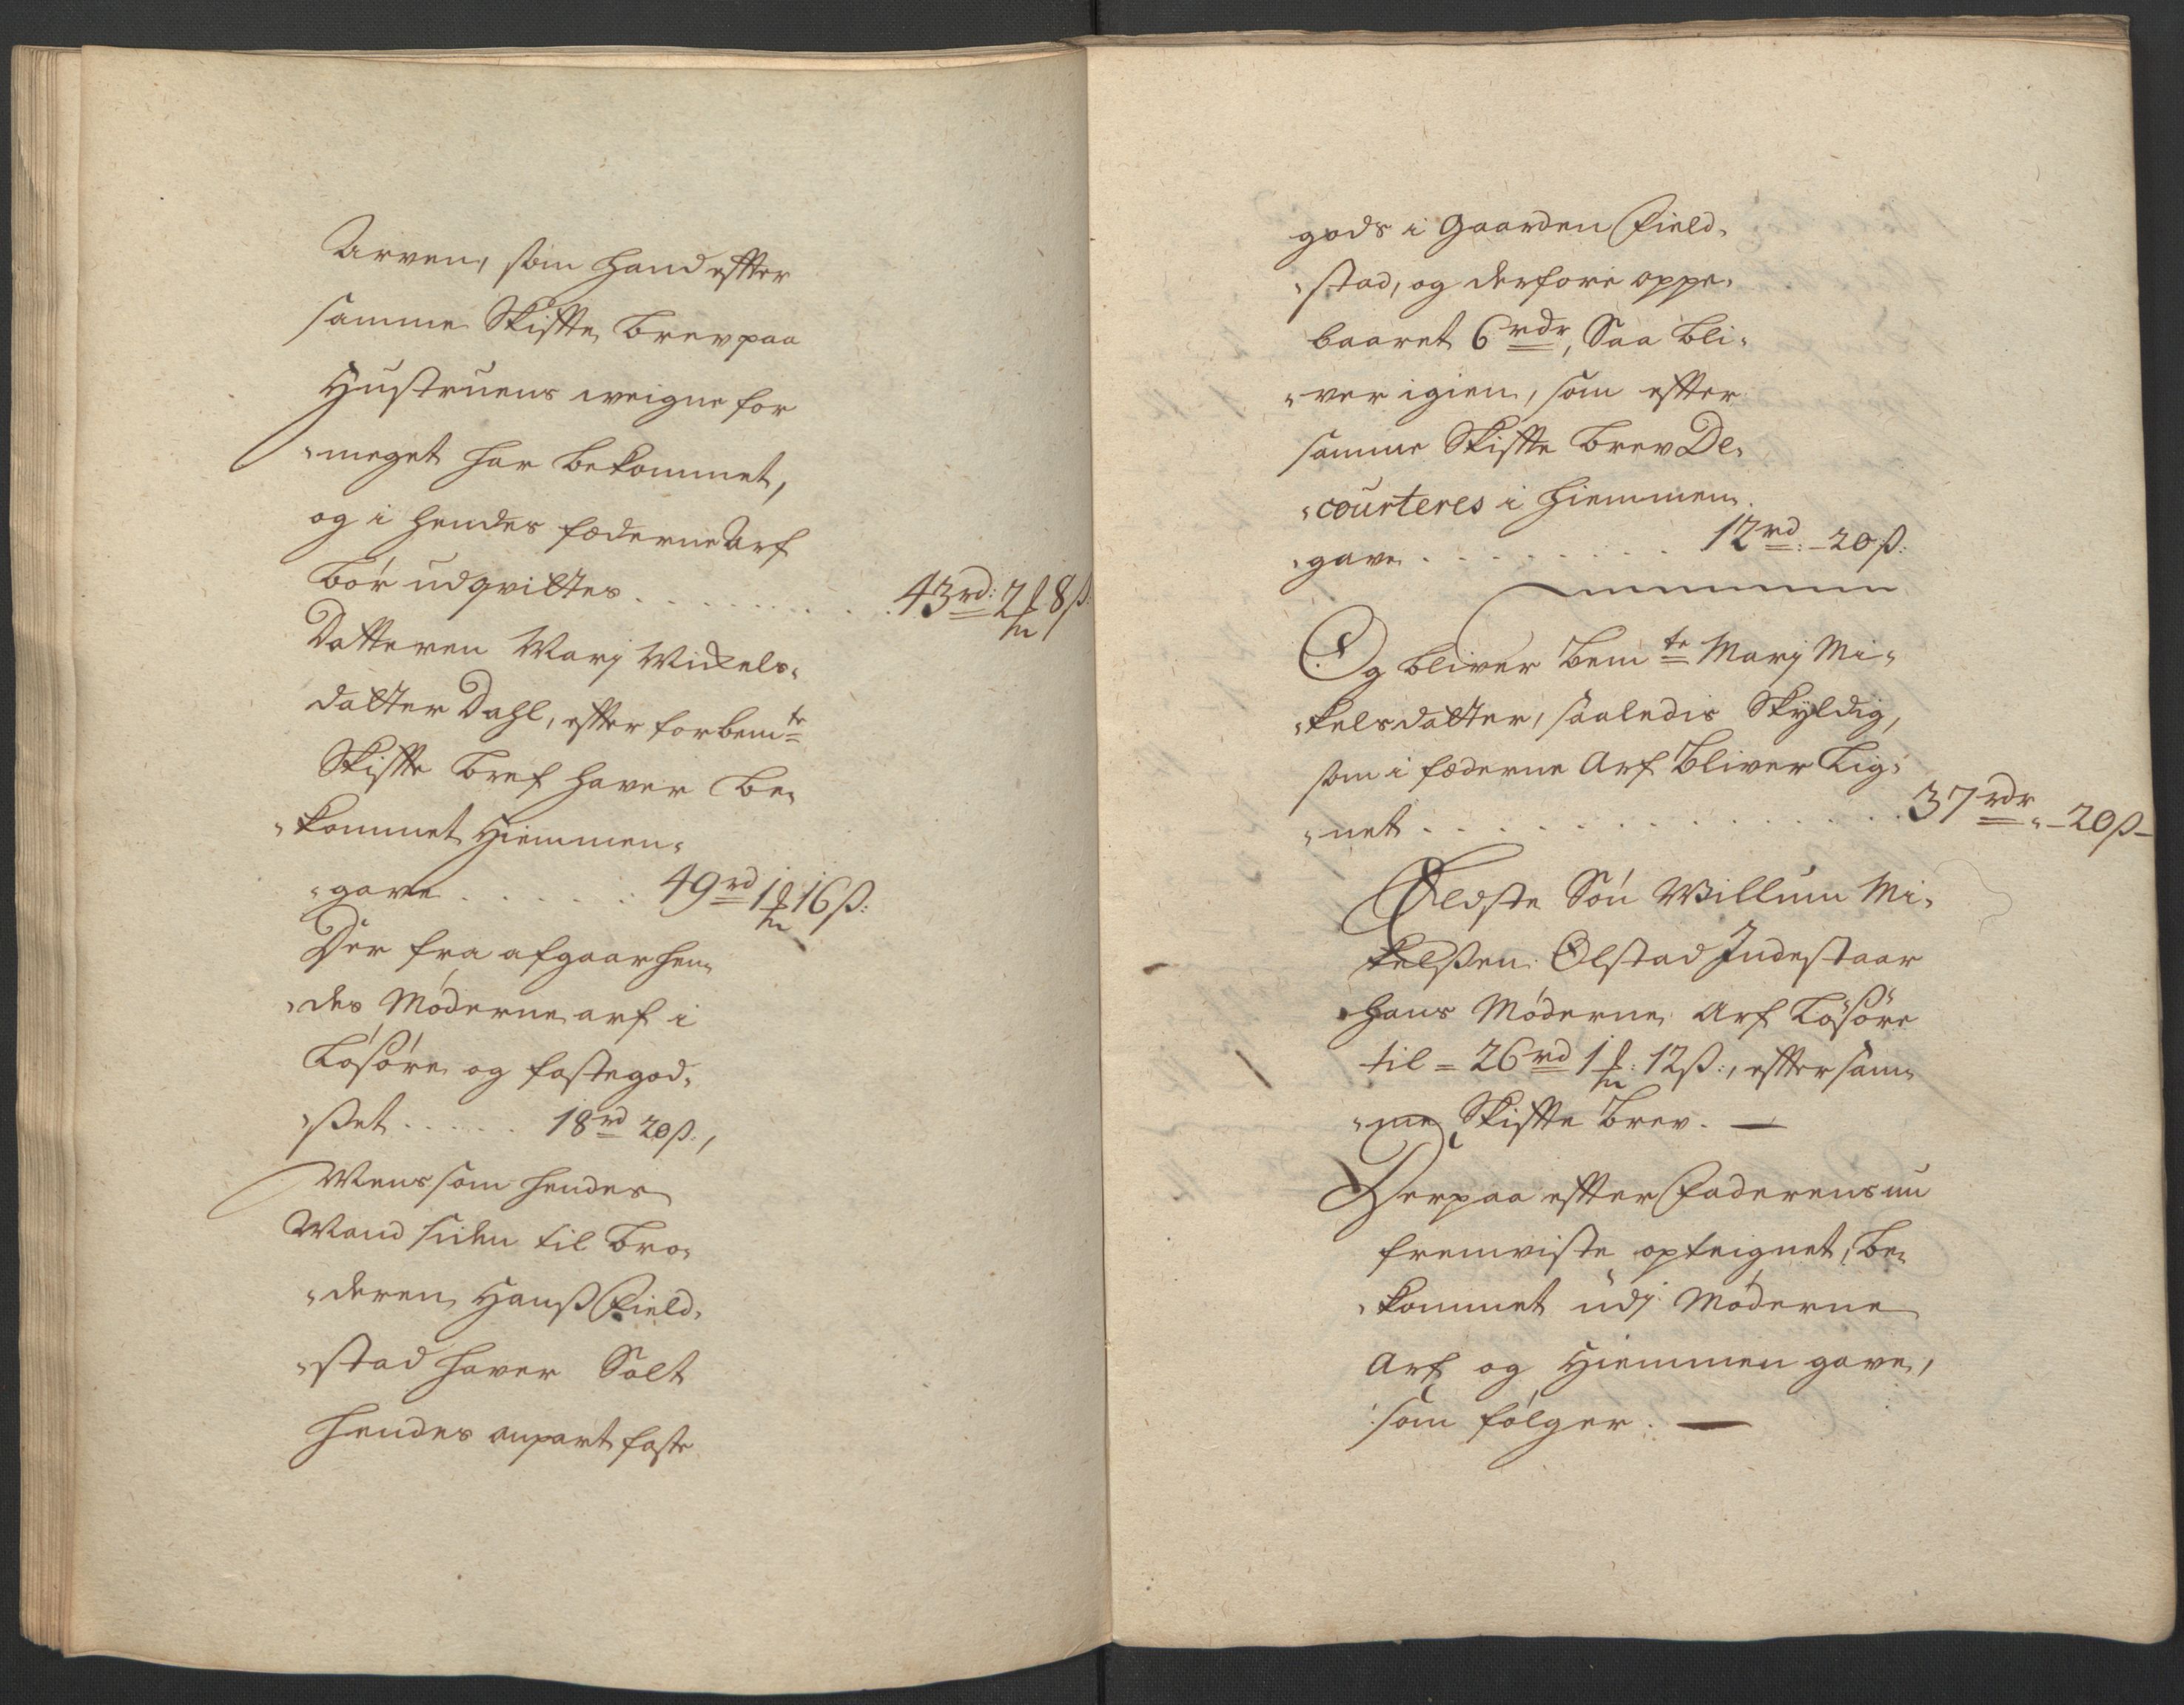 Arven, som hand effter
samme Skiffte Brev paa
Hustruens weigne for
meget har bekommet,
og i hendes fæderne Arf
bør udqvittes . . . . . . . . . 43 rd: 2 ℔ 8 ß:
Datteren Marj Mickels-
datter Dahl, effter forbemte
Skiffte Bref haver be-
kommet Hiemmen-
gave . . . . . . 49 rd 1 ℔ 16 ß:
Der fra afgaar hen-
des Møderne arf i
Løsøre og fastegod-
ßet . . . . . 18 rd 20 ß:,
Mens som hendes
Mand siden til Bro-
deren, Hanß Field-
stad haver Solt
hendes anpart faste
gods i Gaarden Field-
stad, og derfore oppe-
baaret 6 rdr, Saa bli-
ver igien, som effter
samme Skiffte Brev De-
courteres i hiemmen-
gave . . . . . . . . 12 rd: - 20 ß:
Og bliver bemte Marj Mi-
kelsdatter, saaledis Skyldig,
som i fæderne Arf bliver Lig-
net . . . . . . . . . . . . . . 37 rdr " - 20 ß -
Ældste Søn Willum Mi-
kelßen Olstad Indestaar
hans Møderne Arf Løsøre
til = 26 rd 1 ℔: 12 ß:, effter sam-
me Skiffte Brev. —
Herpaa effter Faderens nu
fremviste opteignet, be-
kommet udj Møderne
Arf og Hiemmen gave,
som følger. —